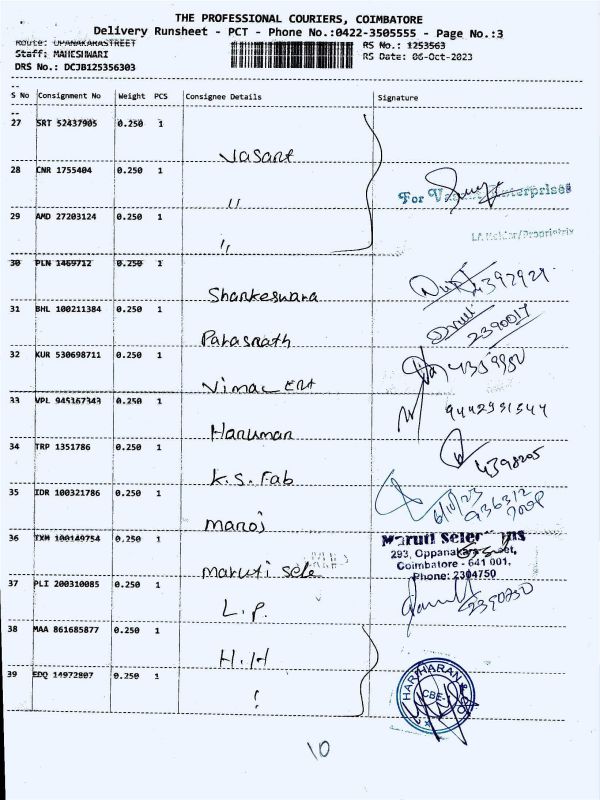 THE PROFESSIONAL COURIERS, COIMBATORE
Delivery Runsheet - PCT - Phone No.:0422-3505555 - Page No.:3
Route: OPANAKARASTREET
RS No.: 1253563
Staff: MAHESHWARI
RS Date: 06-Oct-2023
DRS No.: DCJB125356303
S No Consignment No Weight PCS Consignee Details Signature
27 SRT 52437905 0.250 1
Vasant
28 CNR 1755404 0.250 1
"
For Enterprises
29 AMD 27203124 0.250 1
"
/Proprietrix
30 PLN 1469712 0.250 1
Shankeswara
4392929
31 BHL 100211384 0.250 1
Parasnath
2390017
32 KUR 530698711 0.250 1
Vimal Ent
33 VPL 945167343 0.250 1
Hanuman
34 TRP 1351786 0.250 1
K.S. Fab
4398205
35 IDR 100321786 0.250 1
Manoj
6/10/23
936312
36 TXM 100149754 0.250 1
Maruti Sele
Maruti
293, Oppanakara Street,
Coimbatore - 641 001.
Phone: 2304750
37 PLI 200310085 0.250 1
L.P.
38 MAA 861685877 0.250 1
H.H
39 EDQ 14972807 0.250 1
HARIHARAN
CBE-
10